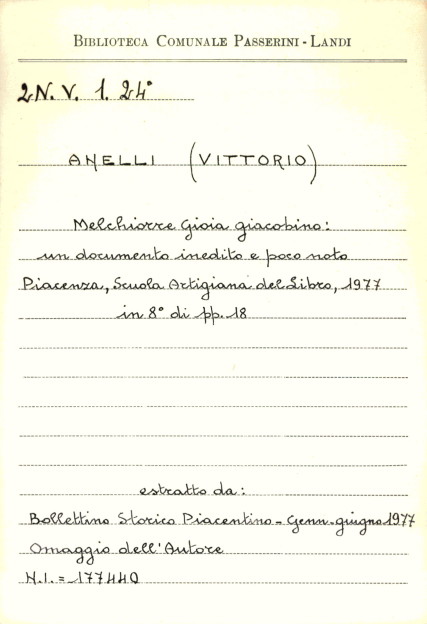 BIBLIOTECA COMUNALE PASSERINI-LANDI
2N. V. 1. 24°
ANELLI (VITTORIO)
Melchiorre Gioia giacobino:
un documento inedito e poco noto
Piacenza, Scuola Artigiana del Libro, 1977
in 8° di pp. 18
estratto da:
Bollettino Storico Piacentino - Genn.-giugno 1977
Omaggio dell'Autore
N.I. = 177440